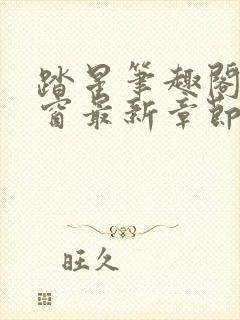 踏星笔趣阁
窗最新章節
旺久